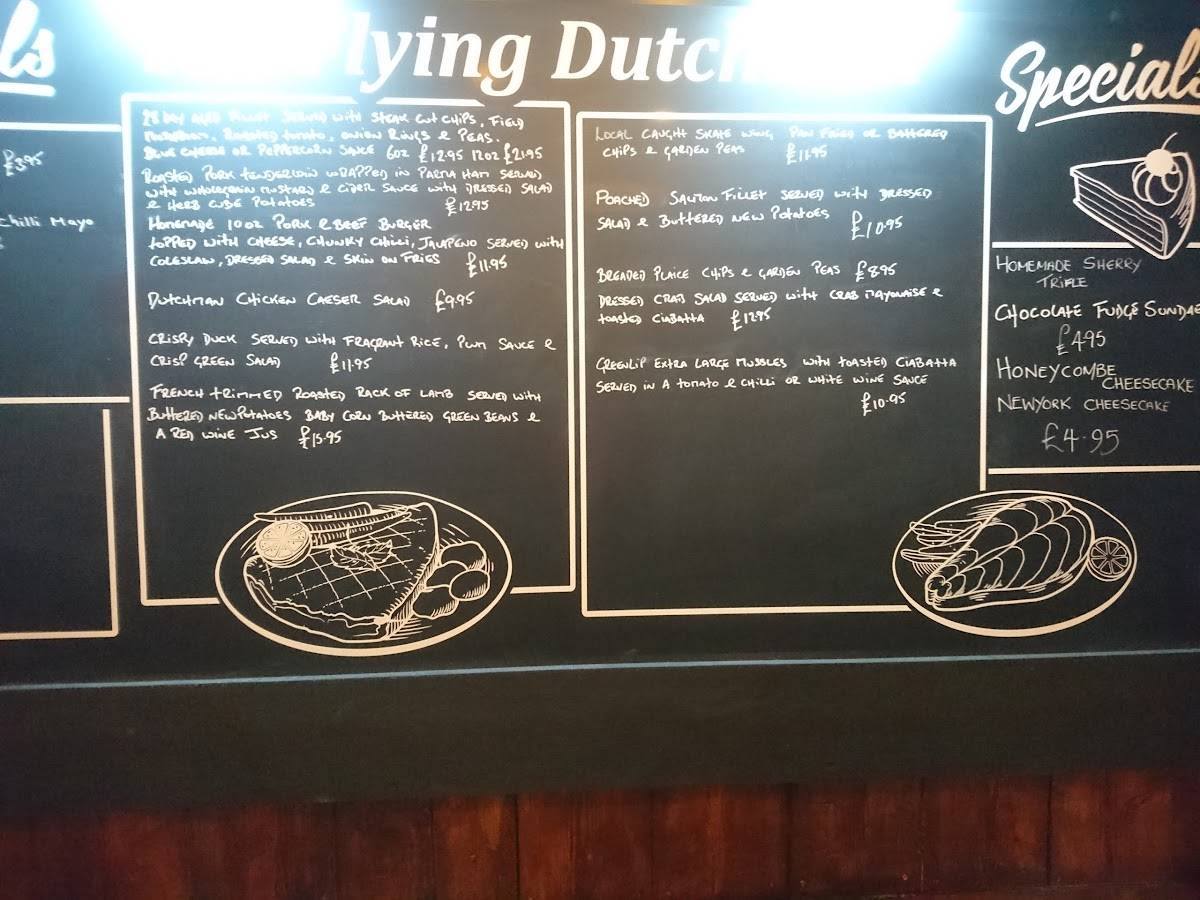 ls
£3.95
Chilli Mayo
lying Dutch
28 Day Aged Fillet Served with Steak Cut Chips, Field
Mushroom, Roasted tomato, onion Rings & Peas.
Blue Cheese or Peppercorn Sauce 6oz £12.95 12oz £21.95
Roasted Pork tenderloin wrapped in Parma Ham Served
with wholegrain mustard & Cider Sauce with Dressed Salad
& Herb Cube Potatoes £12.95
Homemade 10oz Pork & Beef Burger
topped with Cheese, Chunky Chilli, Jalapeno served with
Coleslaw, Dressed Salad & Skin on Fries £11.95
Dutchman Chicken Caeser Salad £9.95
Crispy Duck Served with Fragrant Rice, Plum Sauce &
Crisp Green Salad £11.95
French trimmed Roasted Rack of Lamb Served with
Buttered New Potatoes Baby Corn Buttered Green Beans &
A Red Wine Jus £15.95
Local Caught Skate Wing Pan Fried or Battered
Chips & Garden Peas £11.95
Poached Salmon Fillet served with Dressed
Salad & Buttered New Potatoes £10.95
Breaded Plaice Chips & Garden Peas £8.95
Dressed Crab Salad served with Crab Mayonaise &
toasted Ciabatta £12.95
Greenlip Extra Large Mussles with toasted Ciabatta
Served in a tomato & chilli or white wine sauce
£10.95
Specials
Homemade Sherry
Trifle
Chocolate Fudge Sundae
£4.95
Honeycombe
Cheesecake
Newyork Cheesecake
£4.95